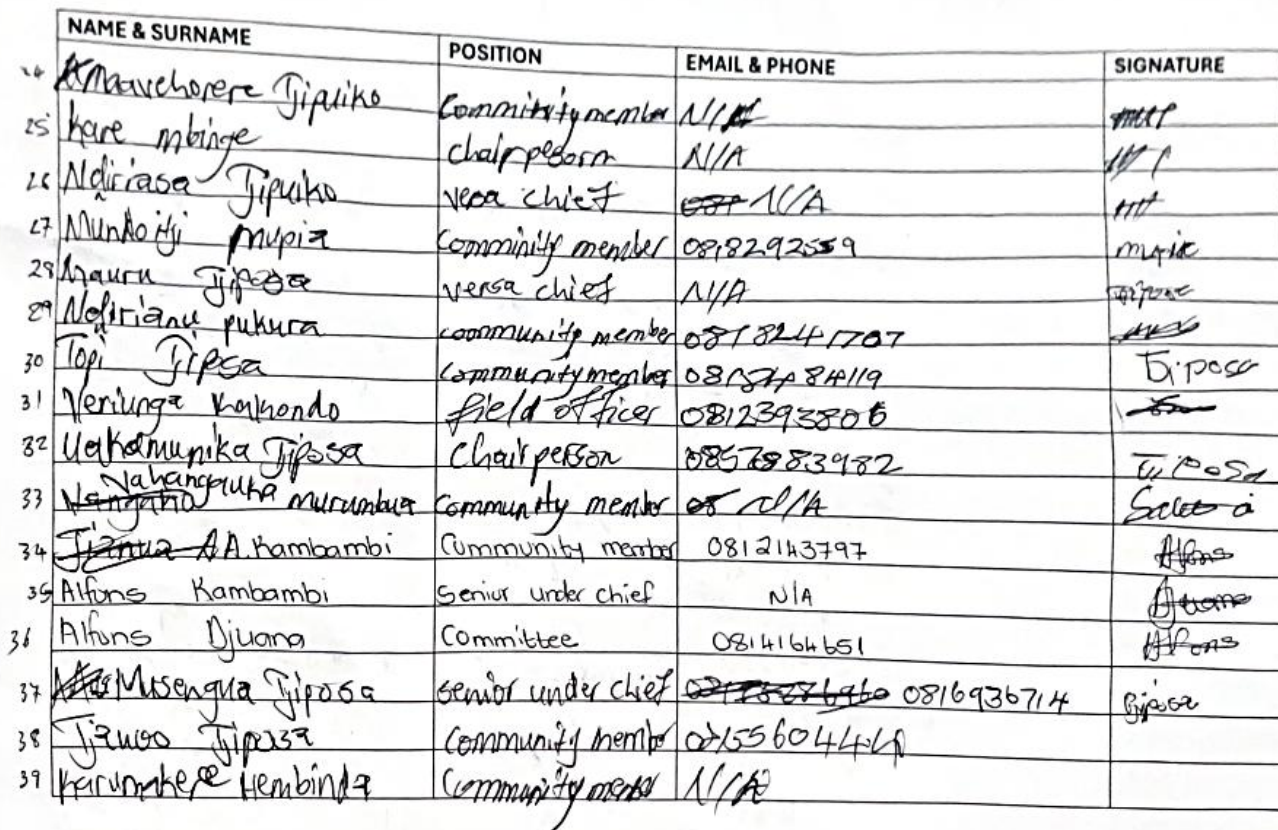 NAME & SURNAME POSITION EMAIL & PHONE SIGNATURE
24 Kmaavehorere Tjipuiko Commitity member N/A
25 Kare mbinge chairppesorn N/A
26 Ndiriasa Tjipuiko vesa chief N/A
27 Munkoitji mupia Comminity member 0818292559 mupia
28 Mauru Tjiposa versa chief N/A Tjiposa
29 Ndirianu pukura community member 0818241707
30 Topi Tjiposa Community member Tjiposa
31 Veriunga Kakondo field officer 0812393806
32 Uakamunika Tjiposa Chairperson 0857883982 Tjiposa
33 Vahangauha murumbua Community member N/A
34 A.A. Kambambi Community member 0812143797 Alfons
35 Alfons Kambambi Senior under chief N/A
36 Alfons Djuana Committee 0814164651 Alfons
37 Musengua Tjiposa senior under chief 0816936714 Tjiposa
38 Tjauoo Tjiposa Community member
39 Karumakere Hembinda Community member N/A